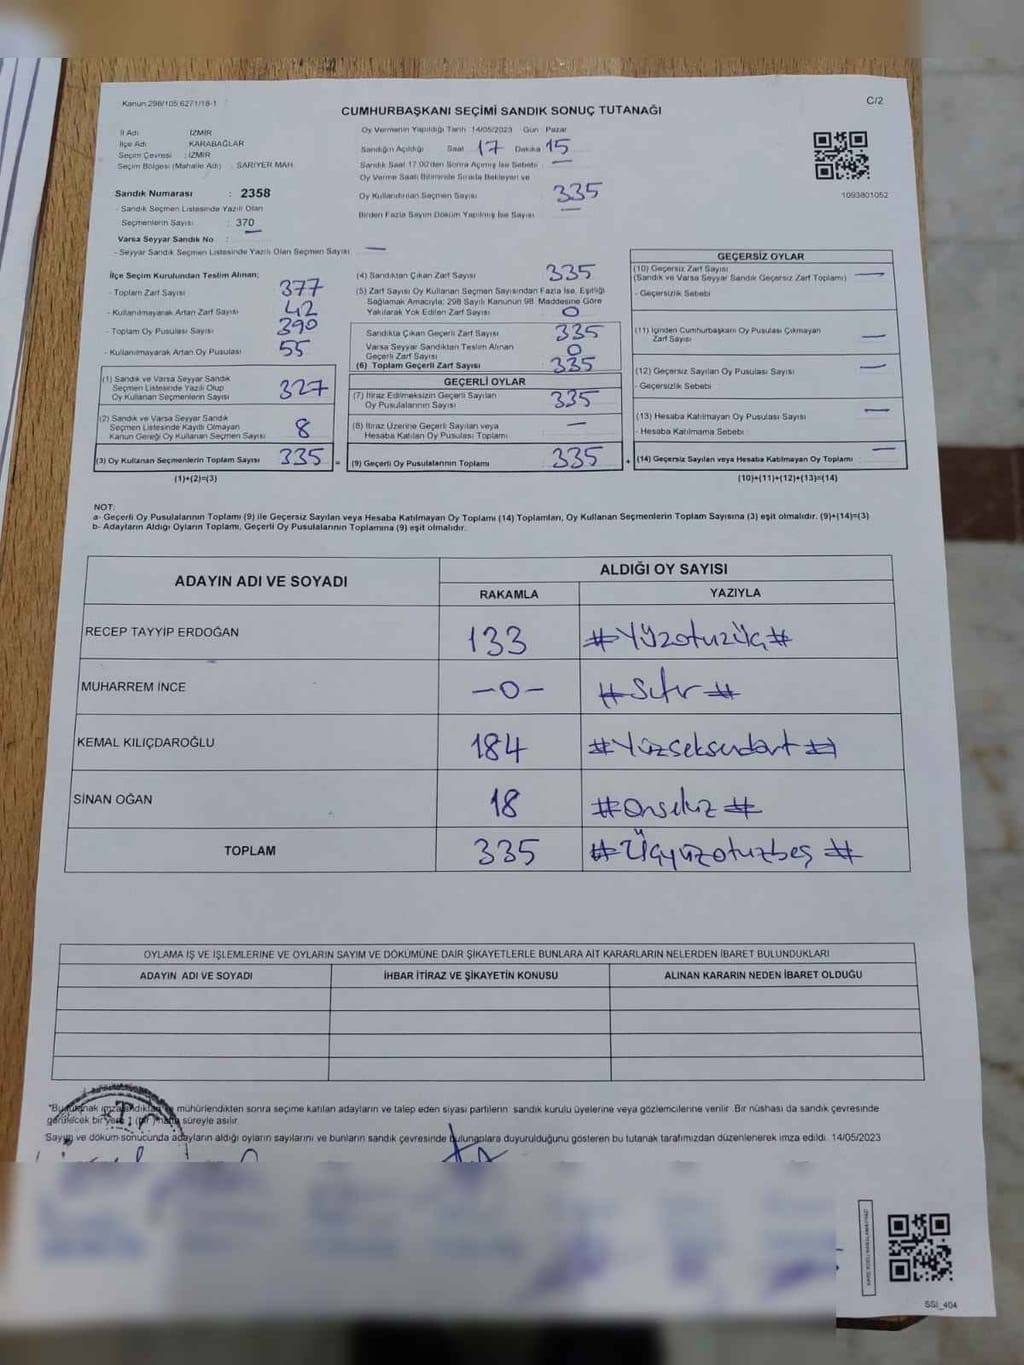 Kanun:298/105;6271/18-1
CUMHURBAŞKANI SEÇİMİ SANDIK SONUÇ TUTANAĞI
C/2
İl Adı : İZMİR
İlçe Adı : KARABAĞLAR
Seçim Çevresi : İZMİR
Seçim Bölgesi (Mahalle Adı) : SARIYER MAH.
Sandık Numarası : 2358
- Sandık Seçmen Listesinde Yazılı Olan
Seçmenlerin Sayısı : 370
Varsa Seyyar Sandık No :
- Seyyar Sandık Seçmen Listesinde Yazılı Olan Seçmen Sayısı : —
Oy Vermenin Yapıldığı Tarih : 14/05/2023 Gün : Pazar
Sandığın Açıldığı Saat : 17 Dakika : 15
Sandık Saat 17:00'den Sonra Açılmış İse Sebebi : —
Oy Verme Saati Bitiminde Sırada Bekleyen ve
Oy Kullandırılan Seçmen Sayısı : 335
Birden Fazla Sayım Döküm Yapılmış İse Sayısı : —
1093801052
İlçe Seçim Kurulundan Teslim Alınan;
- Toplam Zarf Sayısı : 377
- Kullanılmayarak Artan Zarf Sayısı : 42
- Toplam Oy Pusulası Sayısı : 390
- Kullanılmayarak Artan Oy Pusulası : 55
(1) Sandık ve Varsa Seyyar Sandık
Seçmen Listesinde Yazılı Olup
Oy Kullanan Seçmenlerin Sayısı : 327
(2) Sandık ve Varsa Seyyar Sandık
Seçmen Listesinde Kayıtlı Olmayan
Kanun Gereği Oy Kullanan Seçmen Sayısı : 8
(3) Oy Kullanan Seçmenlerin Toplam Sayısı : 335 =
(1)+(2)=(3)
(4) Sandıktan Çıkan Zarf Sayısı : 335
(5) Zarf Sayısı Oy Kullanan Seçmen Sayısından Fazla İse, Eşitliği
Sağlamak Amacıyla; 298 Sayılı Kanunun 98. Maddesine Göre
Yakılarak Yok Edilen Zarf Sayısı : 0
Sandıkta Çıkan Geçerli Zarf Sayısı : 335
Varsa Seyyar Sandıktan Teslim Alınan
Geçerli Zarf Sayısı : 0
(6) Toplam Geçerli Zarf Sayısı : 335
GEÇERLİ OYLAR
(7) İtiraz Edilmeksizin Geçerli Sayılan
Oy Pusulalarının Sayısı : 335
(8) İtiraz Üzerine Geçerli Sayılan veya
Hesaba Katılan Oy Pusulası Toplamı : —
(9) Geçerli Oy Pusulalarının Toplamı : 335 +
GEÇERSİZ OYLAR
(10) Geçersiz Zarf Sayısı
(Sandık ve Varsa Seyyar Sandık Geçersiz Zarf Toplamı) : —
- Geçersizlik Sebebi :
(11) İçinden Cumhurbaşkanı Oy Pusulası Çıkmayan
Zarf Sayısı : —
(12) Geçersiz Sayılan Oy Pusulası Sayısı : —
- Geçersizlik Sebebi :
(13) Hesaba Katılmayan Oy Pusulası Sayısı : —
- Hesaba Katılmama Sebebi :
(14) Geçersiz Sayılan veya Hesaba Katılmayan Oy Toplamı : —
(10)+(11)+(12)+(13)=(14)
NOT:
a- Geçerli Oy Pusulalarının Toplamı (9) ile Geçersiz Sayılan veya Hesaba Katılmayan Oy Toplamı (14) Toplamları, Oy Kullanan Seçmenlerin Toplam Sayısına (3) eşit olmalıdır. (9)+(14)=(3)
b- Adayların Aldığı Oyların Toplamı, Geçerli Oy Pusulalarının Toplamına (9) eşit olmalıdır.
ADAYIN ADI VE SOYADI
ALDIĞI OY SAYISI
RAKAMLA YAZIYLA
RECEP TAYYİP ERDOĞAN 133 #Yüzotuzüç#
MUHARREM İNCE -0- #Sıfır#
KEMAL KILIÇDAROĞLU 184 #Yüzseksendört#
SİNAN OĞAN 18 #onsekiz#
TOPLAM 335 #Üçyüzotuzbeş#
OYLAMA İŞ VE İŞLEMLERİNE VE OYLARIN SAYIM VE DÖKÜMÜNE DAİR ŞİKAYETLERLE BUNLARA AİT KARARLARIN NELERDEN İBARET BULUNDUKLARI
ADAYIN ADI VE SOYADI İHBAR İTİRAZ VE ŞİKAYETİN KONUSU ALINAN KARARIN NEDEN İBARET OLDUĞU
*Bu tutanak imzalandıktan ve mühürlendikten sonra seçime katılan adayların ve talep eden siyasi partilerin sandık kurulu üyelerine veya gözlemcilerine verilir. Bir nüshası da sandık çevresinde
görülecek bir yere 1 (bir) hafta süreyle asılır.
Sayım ve döküm sonucunda adayların aldığı oyların sayılarını ve bunların sandık çevresinde bulunanlara duyurulduğunu gösteren bu tutanak tarafımızdan düzenlenerek imza edildi. 14/05/2023
SSI_404